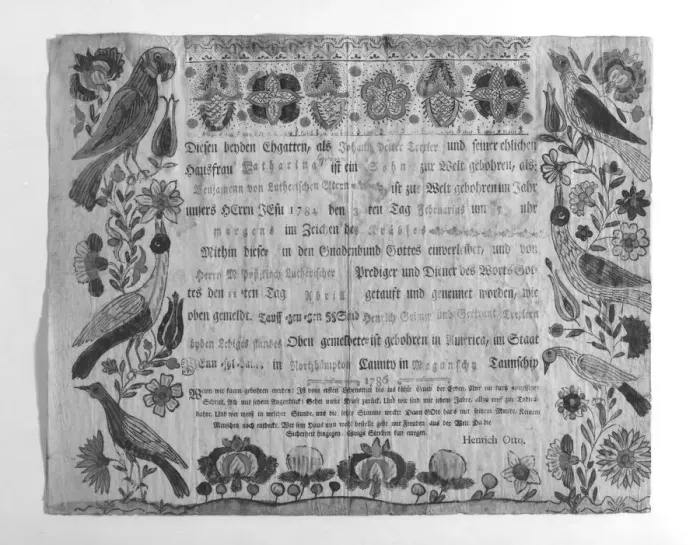 Diesen beyden Ehgatten, als Johann Peter Trexler und seiner ehlichen
Hausfrau Catharina ist ein Sohn zur Welt gebohren, als:
Benjamenn von Lutherischen Eltern ist zur Welt gebohren im Jahr
unsers HErrn JEsu 1784 den 3 ten Tag Februarius um 5 uhr
morgens im Zeichen des
Mithin dieser in den Gnadenbund Gottes einverleibet, und von
Herrn Lutherischer Prediger und Diener des Worts Got-
tes den 11 ten Tag Abril getauft und genennet worden, wie
oben gemeldt. Tauff Sind Henrich und Gertraut
byden Lediges standes Oben gemeldete ist gebohren in America, im Staat
Penn in Northhämpton Caunty in Taunschip
1786
Wenn wir kaum gebohren werden: Ist vom ersten Lebenstritt bis ins kühle Grab der Erden, Nur ein kurz gemessener
Schritt, Ach mit jedem Augenblick! Gehet unsre Kraft zurück, Und wir sind mit jedem Jahre, allzu reif zur Todten-
bahre. Und wer weiß in welcher Stunde, uns die letzte Stimme weckt: Dann GOtt hat's mit seinem Munde, Keinem
Menschen noch entdeckt. Wer sein Haus nun wohl bestellt geht mit Freuden aus der Welt. Da die
Sicherheit hingegen, Ewigs Sterben kan erregen.
Henrich Otto.